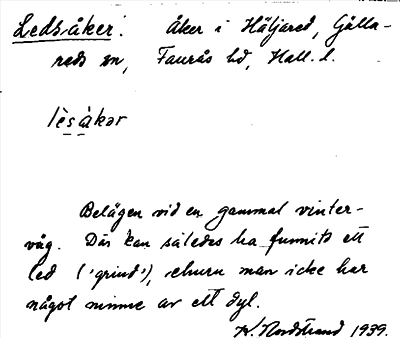 Ledsåker: Åker i Häljared, Gälla-
reds sn, Faurås hd, Hall. l.
lèsåkər
Belägen vid en gammal vinter-
väg. Där kan således ha funnits ett
led ('grind'), churu man icke har
något minne av ett dyl.
W. Nordstrand 1939.